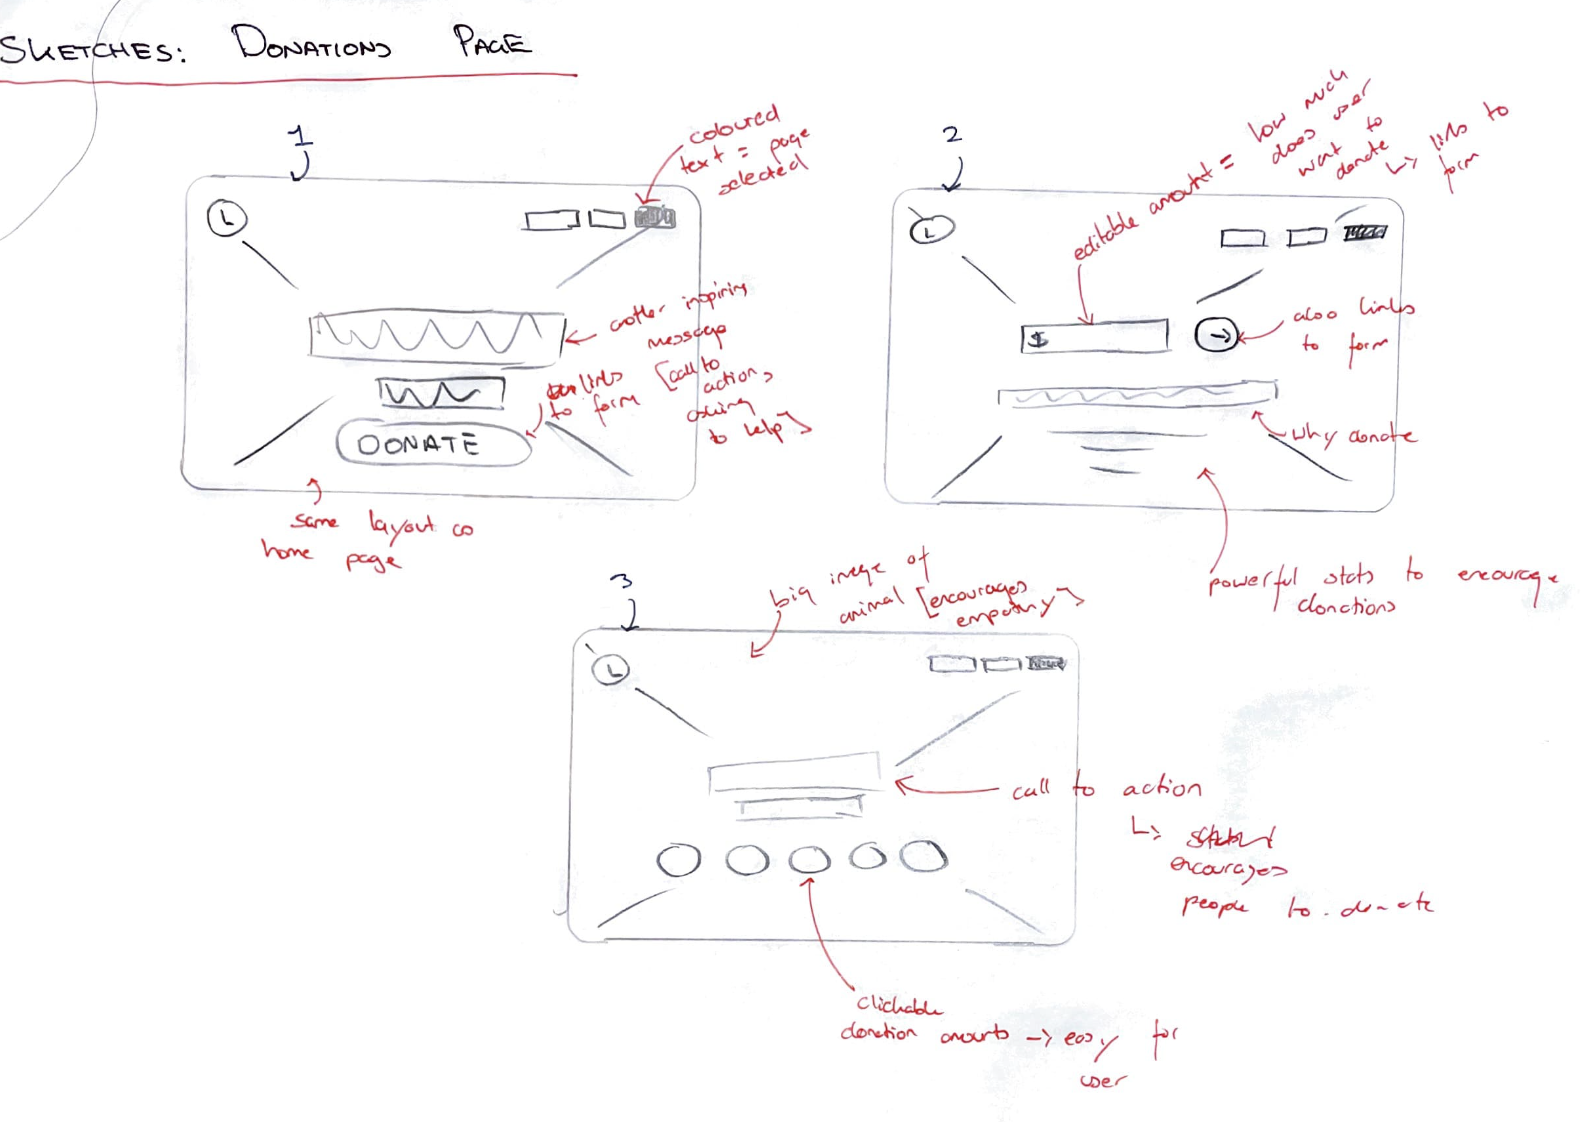 SKETCHES: DONATIONS PAGE
1
coloured
text = page
selected
L
another inspiring
message
[call to
action,
asking
to help]
links
to form
DONATE
same layout as
home page
2
editable amount = how much
does user
want to
donate
↳ links to
form
L
$
→
also links
to form
why donate
powerful stats to encourage
donations
3
big image of
animal [encourages
empathy]
L
call to action
↳
encourages
people to donate
clickable
donation amounts → easy for
user